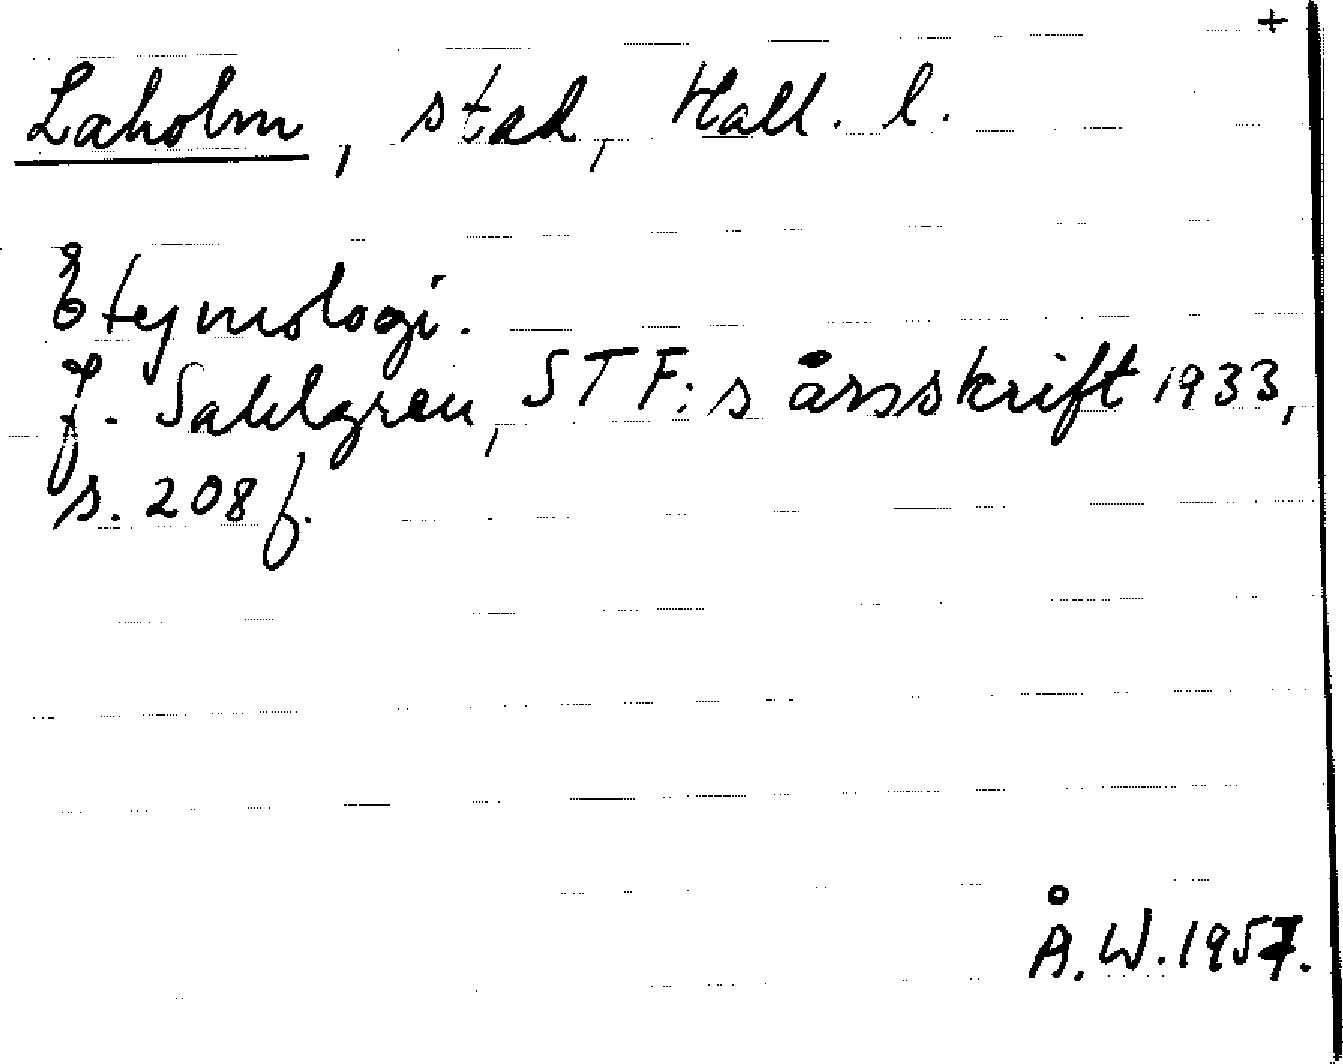 +
Laholm, stad, Hall. l.
Etymologi.
J. Sahlgren, STF:s årsskrift 1933,
s. 208 f.
Å.W. 1957.